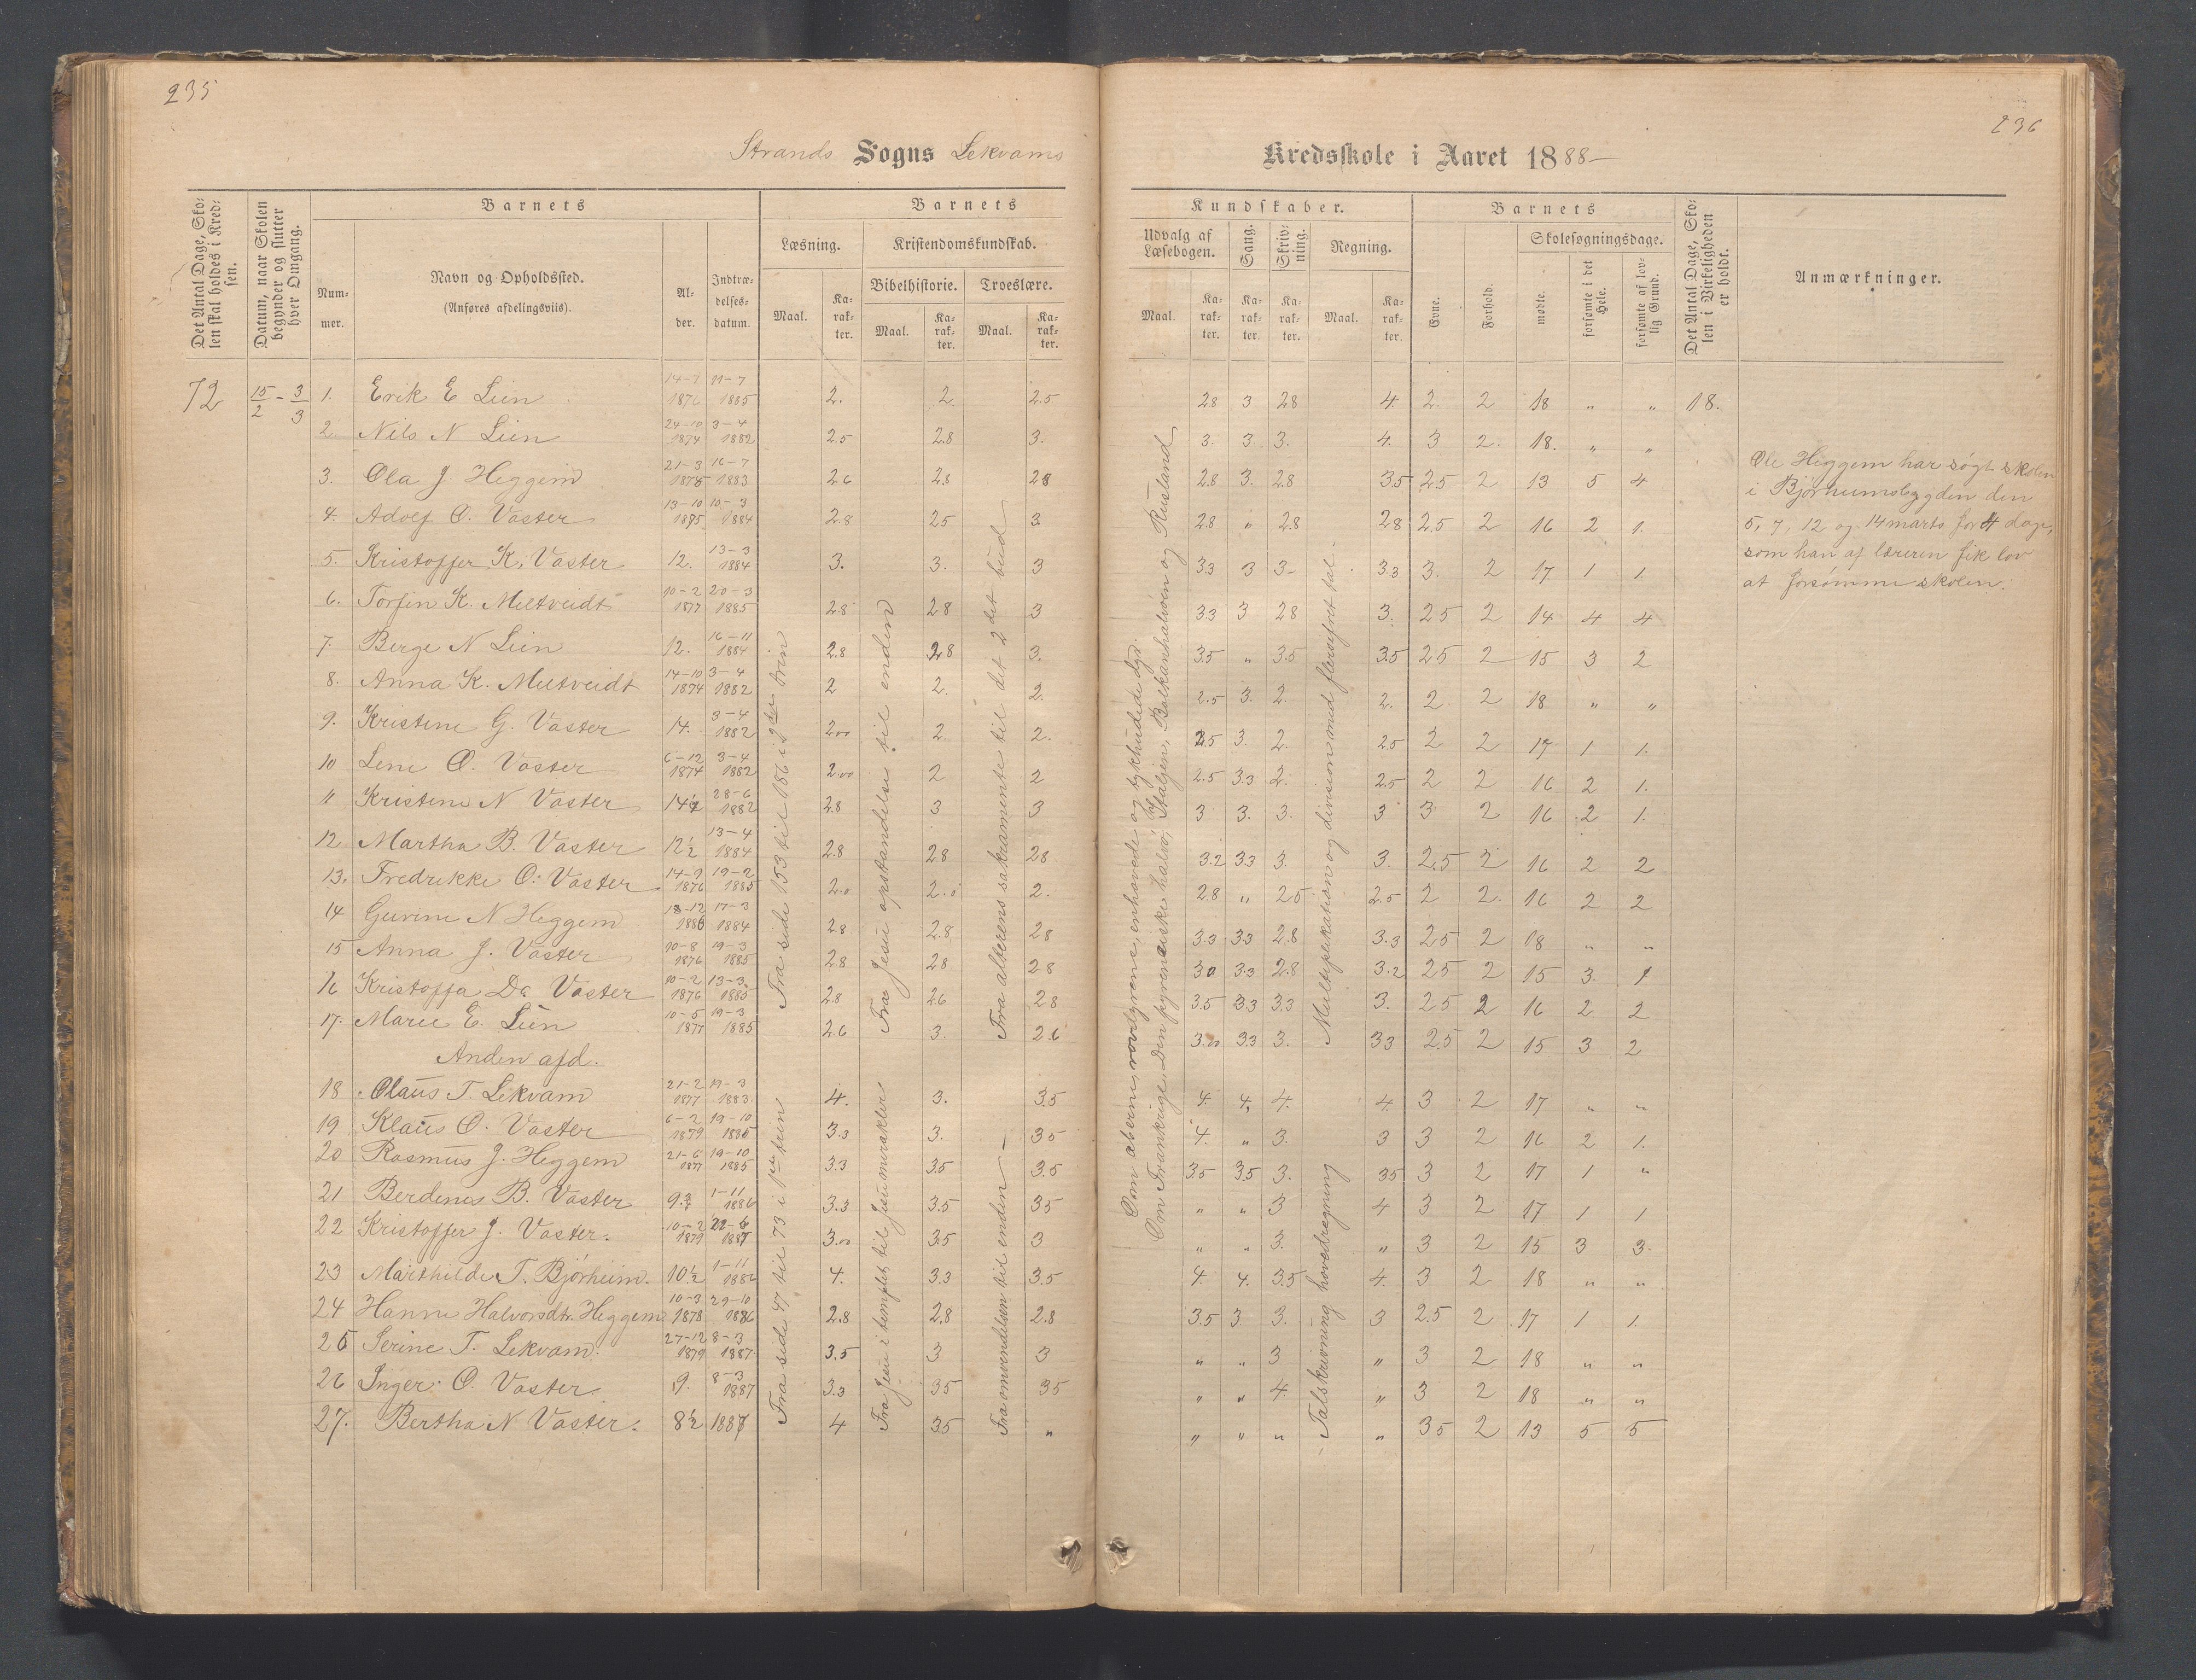 235
236
Strands Sogns Lekvams
Kredsskole i Aaret 1888–
Det Antal Dage, Skolen skal holdes i Kredsen.
Datum, naar Skolen begynder og slutter hver Omgang.
Barnets
Nummer.
Navn og Opholdssted.
(Anføres afdelingsviis).
Alder.
Indtrædelsesdatum.
Barnets
Læsning.
Kristendomskundskab.
Bibelhistorie. Troeslære.
Maal. Karakter. Maal. Karakter. Maal. Karakter.
Kundskaber.
Udvalg af Læsebogen. Sang. Skrivning. Regning.
Maal. Karakter. Karakter. Karakter. Maal. Karakter.
Barnets
Evne. Forhold.
Skolesøgningsdage.
mødte. forsømte i det Hele. forsømte af lovlig Grund.
Det Antal Dage, Skolen i Virkeligheden er holdt.
Anmærkninger.
72 15/2 – 3/3 1. Erik E Lien 11–7 1885 2. 2 2.5 28 3 28 4. 2. 2 18 " " 18.
2. Nils N Lien 24–10 1874 3–4 1882 2.5 2.8 3. 3. 3. 3. 4. 3 2. 18. " "
3. Ola J. Heggem 21–3 16–7 1883 2.6 2.8 28 2.8 3. 2.8 3.5 2.5 2 13 5 4
4. Adolf O. Vaster 13–10 1875 10–3 1884 2.8 25 3 2.8 " 2.8 28 2.5 2 16 2 1.
5. Kristoffer K. Vaster 12. 13–3 1884 3. 3. 3 33 3 3– 3.3 3. 2 17 1 1.
6. Torfin K. Meltveidt 10–2 1877 20–3 1885 2.8 28 3 3.3 3 28 3. 25 2 14 4 4
7. Berge N Lien 12. 16–11 1884 2.8 28 3. 3.5 " 3.5 3.5 25 2 15 3 2
8. Anna K. Meltveidt 14–10 1874 3–4 1882 2 2. 2. 2.5 3. 2. 2. 2 2 18 " "
9. Kristene G. Vaster 14. 3–4 1882 2.00 2. 2. 2.5 3. 2. 25 2 2 17 1 1.
10 Lene O. Vaster 6–12 1874 3–4 1882 2.00 2 2 2.5 3.3 2. 2.5 2 2 16 2 1.
11 Kristene N Vaster 28–6 1882 2.8 3 3 3 3. 3. 3 3 2 16 2 1.
12. Martha B. Vaster 12½ 13–4 1884 2.8 28 28 3.2 3.3 3. 3. 2.5 2 16 2 2
13. Fredrikke O. Vaster 14–9 1876 19–2 1885 2.0 2.0 2. 2.8 " 25 2.5 2 2. 16 2 2
14 Gurine N Heggem 18–12 17–3 1884 2.8 2.8 28 3.3 3.3 2.8 3.3 25 2 18 " "
15 Anna J. Vaster 10–8 1876 19–3 1885 28 28 28 30 3.3 2.8 3.2 25 2 15 3. 1
16 Kristoffa Da Vaster 10–2 1876 13–3 1885 2.8 2.6 28 3.5 3.3 3.3 3. 25 2 16 2 2
17. Marie E. Lien 10–5 1877 19–3 1885 2.6 3. 2.6 3.00 3.3 3. 33 2.5 2 15 3 2
Anden afd.
18 Olaus T. Lekvam 21–2 1877 19–3 1883 4. 3. 3.5 4. 4. 4. 4. 3 2 17 " "
19 Klaus O. Vaster 6–2 1879 19–10 3.3 3. 35 4. " 3. 3 3 2 16 2 1.
20 Rasmus J. Heggem 21–6 1877 19–10 1885 3.3 3.5 3.5 3.5 3.5 3. 35 3 2 17 1 "
21 Berdenes B. Vaster 1–11 1886 3.3 3.5 35 " " 3 4 3 2 17 1 1
22 Kristoffer J. Vaster. 10–2 1879 3.00 3.5 3 " " 3. " 3 2 15 3 3.
23 Marthilde T. Bjørheim. 10½ 1–11 1886 4. 3.3 3.5 4. 4. 3.5 4. 3 2 18 " "
24 Hanne Halvorsdt. Heggem 10–3 1878 29–10 1886 2.8 2.8 2.8 3.5 3. 3. 3 2.5 2 17 1 1.
25 Serine T. Lekvam. 27–12 1879 8–3 1887 3.5 3 3 " " 3 " 3 2 18 " "
26 Inger O. Vaster 9. 8–3 1887 3.3 35 35 " " 4. " 3 2 18 " "
27. Bertha N Vaster. 8½ 1887 4 3.5 " " " " " 35 2 13 5 5
Fra side 153 til 186 i 2den trin
Fra Jesu opstandelse til enden
Fra alterens sakramente til det 2det bud
Fra side 47 til 73 i 1ste trin
Fra Jesu i templet til Jesu mirakler
Fra omvendelsen til enden –
Om aberne, rovdyrene, enhovede og tykhudede dyr.
Om Frankrige, Den pyrenæiske halvø, Italjen, Balkanhalvøen og Rusland
Multiplikation og division med flersifret tal.
Talskrivning hovedregning
Ole Heggem har søgt skolen
i Bjørheimsbygden den
5, 7, 12 og 14 marts for 4 dage,
som han af læreren fik lov
at forsømme skolen.